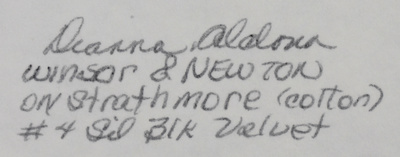 Deanna Aldona
Winsor & NEWTON
on Strathmore (cotton)
# 4 Sil Blk Velvet